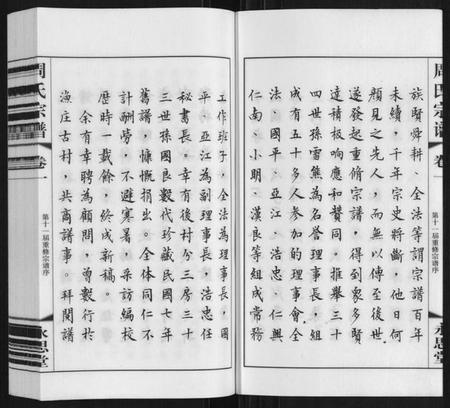 周氏宗譜
卷一
第十一届重修宗譜序
永思堂
族賢舜耕、全法等謂宗譜百年
未續，千年宗史將斷，他日何
顏見之先人，而無以傳至後世
遂發起重修宗譜，得到眾多賢
達積極响應和贊同，推舉三十
四世孫雪熊為名誉理事長，組
成有五十多人參加的理事會全
法、國平、亞江、浩忠、仁興
仁南、小明、漢良等組成常務
工作班子，全法為理事長，國
平、亞江為副理事長，浩忠任
秘書長。幸有後村分三房三十
三世孫國良數代珍藏民國七年
舊譜，慷慨捐出。全体同仁不
計酬勞，不避寒暑，采訪編校
歷時一載餘，終成新稿。
余有幸聘為顧問，曾數行於
漁庄古村，共商譜事。拜閱譜
周氏宗譜
卷一
第十一届重修宗譜序
永思堂